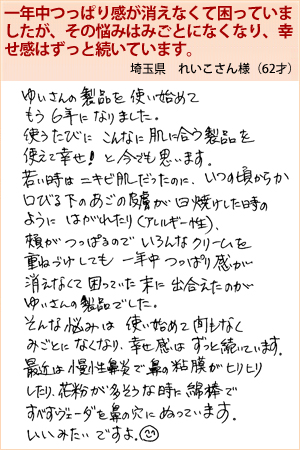 一年中つっぱり感が消えなくて困っていま
したが、その悩みはみごとになくなり、幸
せ感はずっと続いています。
埼玉県　れいこさん様（62才）
ゆいさんの製品を使い始めて
もう6年になりました。
使うたびにこんなに肌に合う製品を
使えて幸せ!と今でも思います。
若い時はニキビ肌だったのに、いつの頃からか
口びる下のあごの皮膚が日焼けした時の
ようにはがれたり(アレルギー性)、
頬がつっぱるのでいろんなクリームを
重ねづけしても一年中つっぱり感が
消えなくて困っていた末に出合えたのが
ゆいさんの製品でした。
そんな悩みは使い始めて間もなく
みごとになくなり、幸せ感はずっと続いています。
最近は慢性鼻炎で鼻の粘膜がヒリヒリ
したり、花粉が多そうな時に綿棒で
すべすヴェーダを鼻の穴にぬっています。
いいみたいですよ。